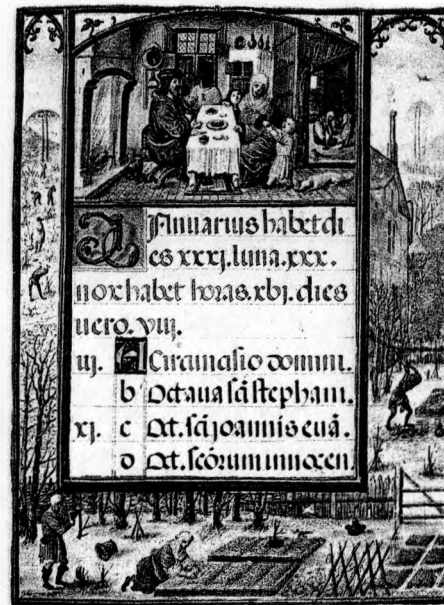 Januarius habet di
es xxxj. luna. xxx.
nox habet horas. xbj. dies
uero. viij.
iij. A Circumcisio domini.
b Octaua scī stephani.
xj. c Oct. scī joannis euā.
d Oct. scōrum innocen.